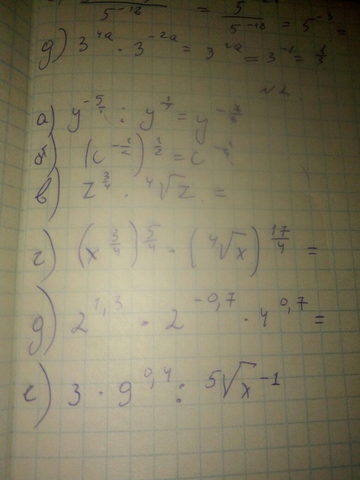 5^{-12} = 5^{-18} = 5^{-3} =
д) 3^{4a} · 3^{-2a} = 3^{2a} = 3^{-1} = 1/3
N 2
а) y : y = y
(c^{-1/2})^{1/2} = c
в) z^{3/4} · ⁴√z =
г) (x^{3/4})^{5/4} · (⁴√x)^{17/4} =
д) 2^{1,3} · 2^{-0,7} · 4^{0,7} =
е) 3 · 9^{0,4} : ⁵√x^{-1}